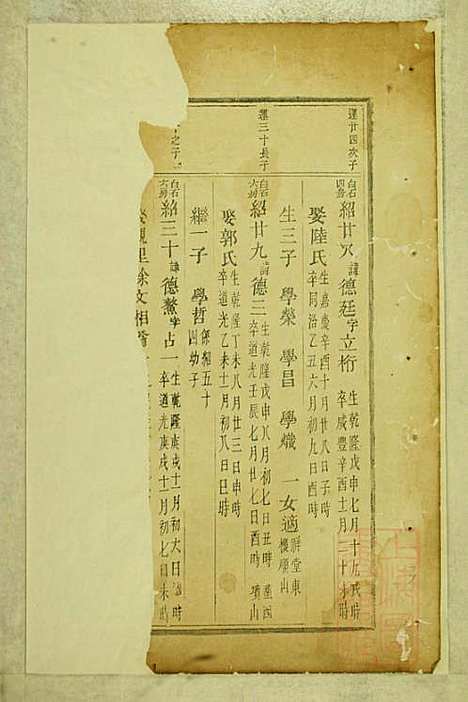 運廿四次子
白石四房 紹廿八 諱德廷字立桁 生乾隆戊申七月十九戌時 卒咸豐辛酉十月二十未時
娶陸氏 生嘉慶辛酉十月廿八日子時 卒同治乙丑六月初九日酉時
生三子 學榮 學昌 學熾 一女適 祥堂東 樓順山
運三十長子
白石六房 紹廿九 諱德三 生乾隆戊申八月初七日丑時 卒道光壬辰七月廿七日酉時 墳山
娶郭氏 生乾隆丁未八月廿三日申時 卒道光乙未十一月初八日巳時
繼一子 學哲 係紹五十四幼子
十之子
白石六房 紹三十 諱德鰲字占一 生乾隆庚戌十一月初六日時 卒道光庚戌十一月初七日未時
里徐文相